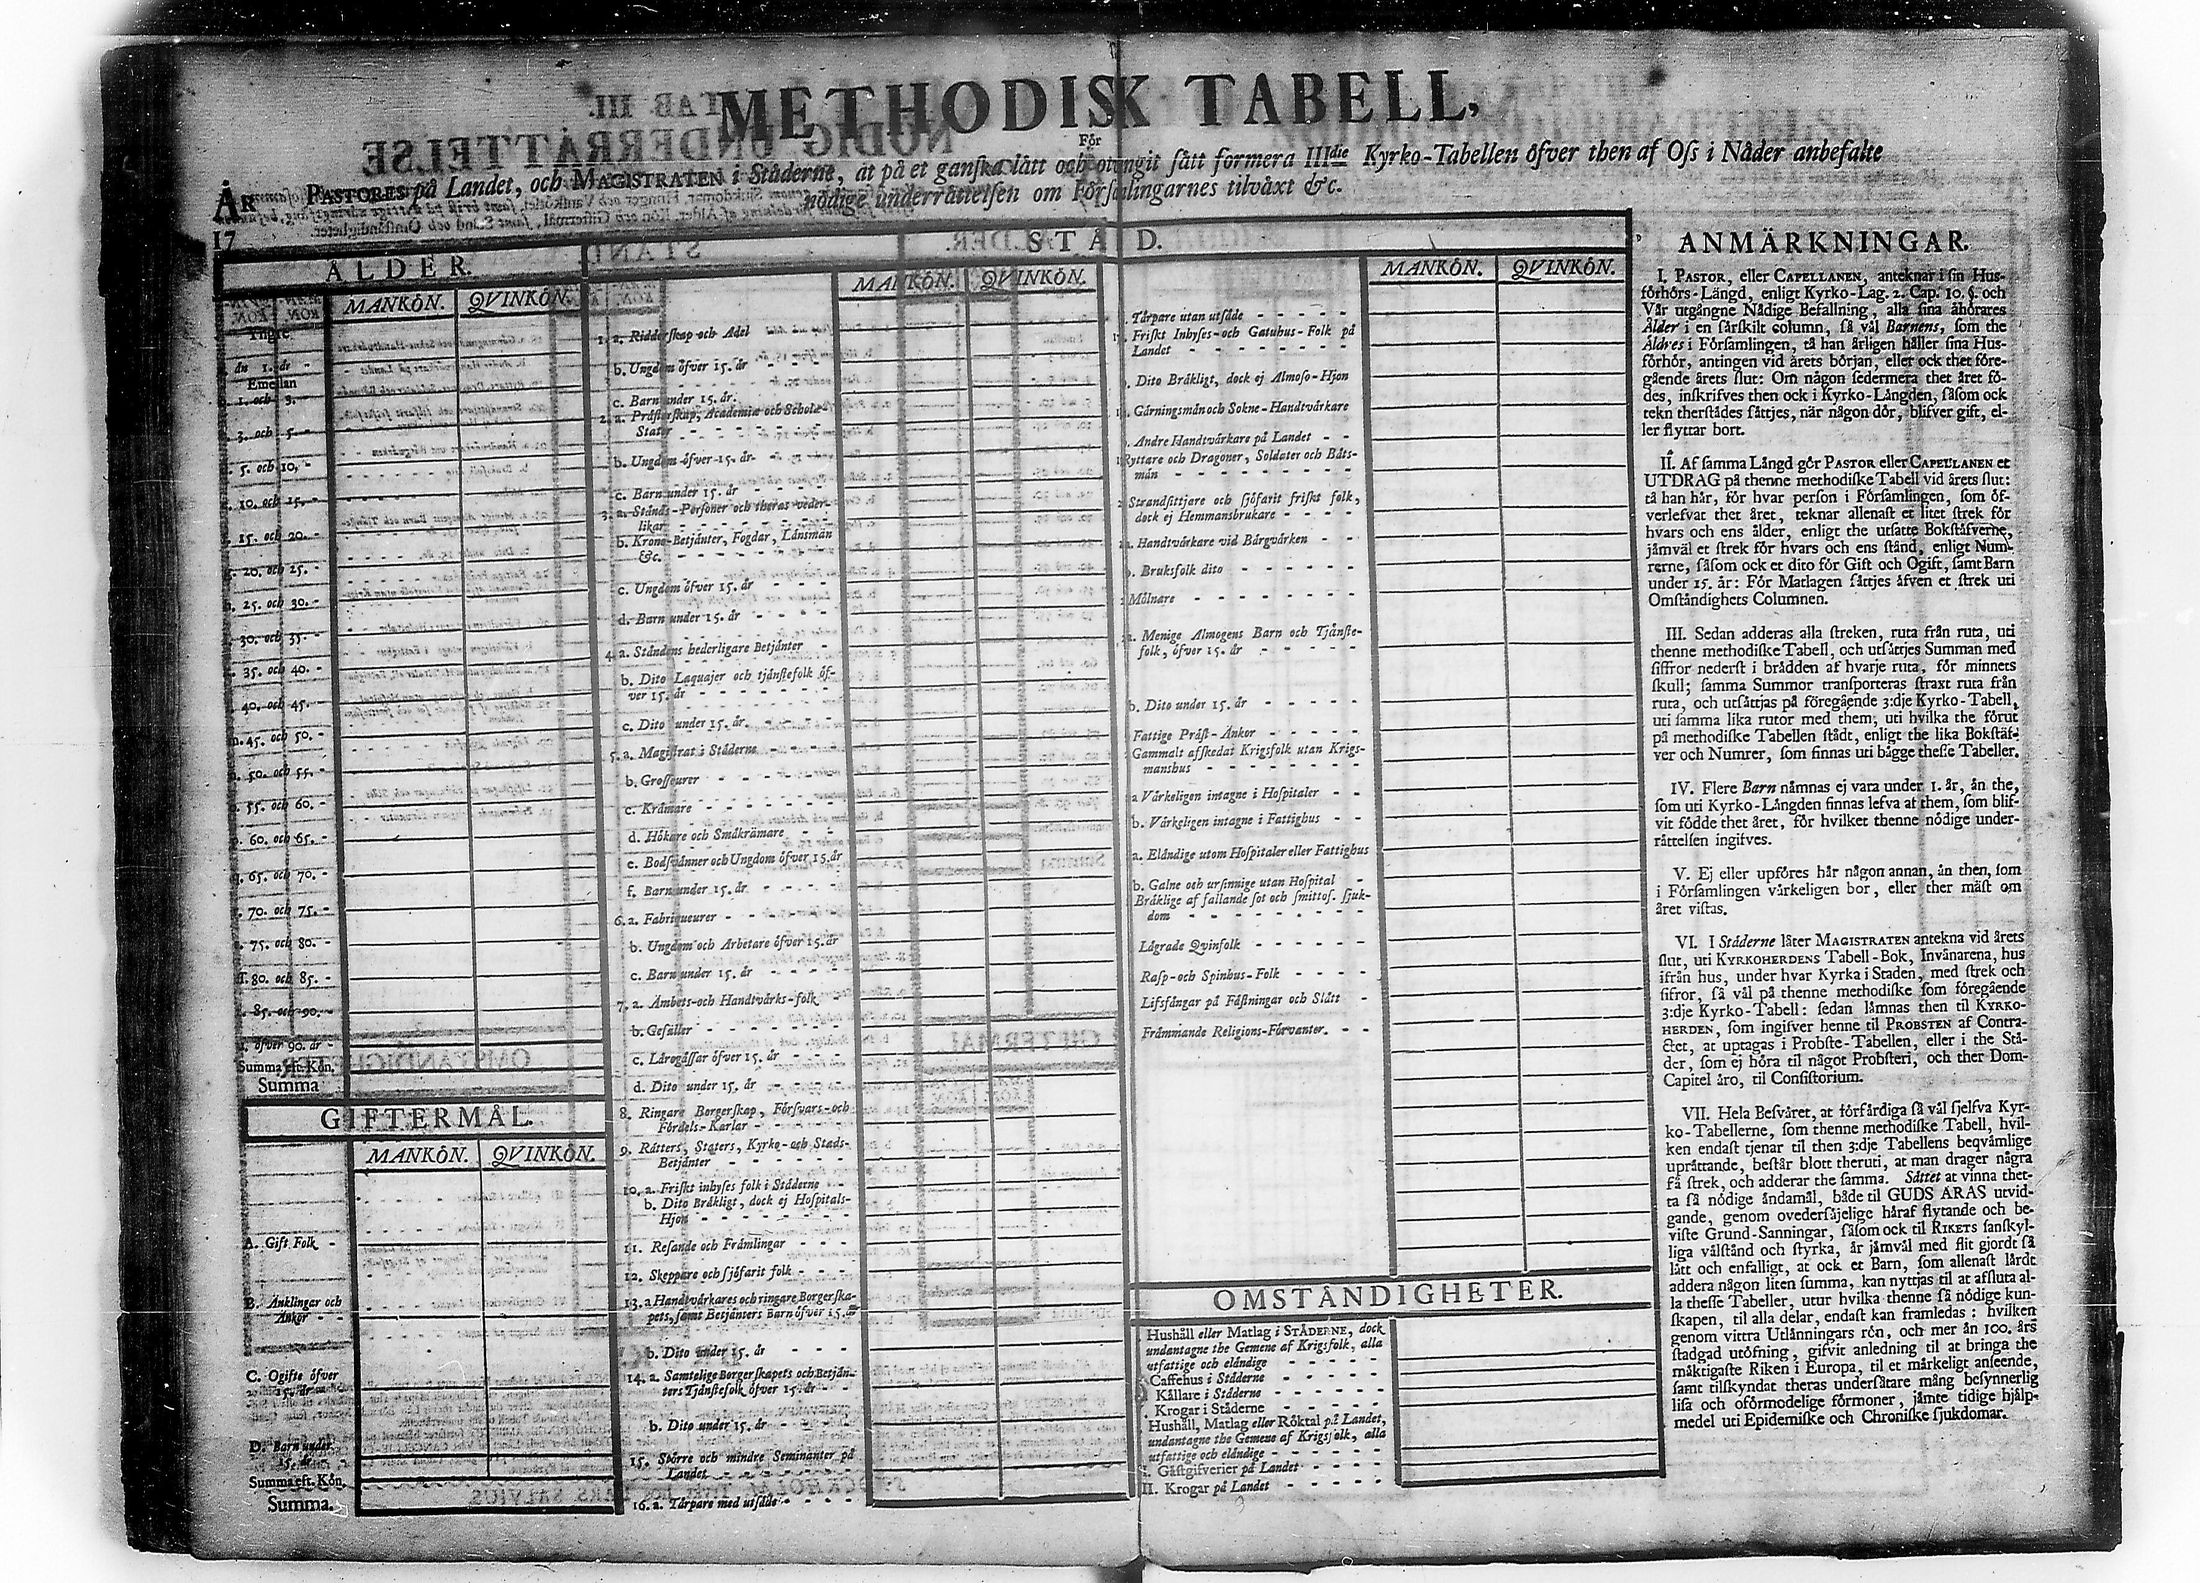 METHODISK TABELL,
För
PASTORES på Landet, och MAGISTRATEN i Städerne, at på et ganska lätt och otvungit sätt formera IIIdie Kyrko-Tabellen öfver then af Oss i Nåder anbefalte
nödige underrättelsen om Församlingarnes tilväxt &c.
ÅR
17
ÅLDER.
MANKÖN. QVINKÖN.
Yngre
än 1. år - -
Emellan
1. och 3.
3. och 5. -
5. och 10, -
10. och 15. -
15. och 20. -
20. och 25. -
25. och 30. -
30. och 35. -
35. och 40. -
40. och 45. -
45. och 50. -
50. och 55. -
55. och 60. -
60. och 65. -
65. och 70. -
70. och 75. -
75. och 80. -
80. och 85. -
85. och 90. -
öfver 90. år -
Summa eft. Kön.
Summa
GIFTERMÅL.
MANKÖN. QVINKÖN.
A. Gift Folk -
B. Änklingar och
Änkor - -
C. Ogifte öfver
15. år -
D. Barn under
15. år -
Summa eft. Kön.
Summa.
STÅD.
MANKÖN. QVINKÖN.
1. a. Ridderskap och Adel
b. Ungdom öfver 15. år
c. Barn under 15. år.
2. a. Prästerskap, Academiæ och Scholæ-
Stater - - - - - -
b. Ungdom öfver 15. år
c. Barn under 15. år
3. a. Stånds-Personer och theras veder-
likar - - - - - -
b. Krono-Betjänter, Fogdar, Länsmän
&c. - - - - - -
c. Ungdom öfver 15. år
d. Barn under 15. år - - -
4. a. Ståndens hederligare Betjänter -
b. Dito Laquajer och tjänstefolk öf-
ver 15. år - - - - -
c. Dito under 15. år. - - -
5. a. Magistrat i Städerne - - -
b. Grosseurer - - - - -
c. Krämare - - - - - -
d. Hökare och Småkrämare - -
e. Bodsvänner och Ungdom öfver 15. år
f. Barn under 15. år - - - -
6. a. Fabriqueurer - - - - -
b. Ungdom och Arbetare öfver 15. år
c. Barn under 15. år - - - -
7. a. Ämbets-och Handtvärks-folk
b. Gesäller - - - - - -
c. Lärogåssar öfver 15. år - - -
d. Dito under 15. år - - - -
8. Ringare Borgerskap, Försvars-och
Fördels-Karlar - - - -
9. Rätters, Staters, Kyrko-och Stads-
Betjänter - - - - -
10. a. Friskt inhyses folk i Städerne - -
b. Dito Bräkligt, dock ej Hospitals-
Hjon - - - - - -
11. Resande och Främlingar - - -
12. Skeppare och sjöfarit folk - - -
13. a Handtvärkares och ringare Borgerska-
pets, samt Betjänters Barn öfver 15. år
b. Dito under 15. år - - - -
14. a. Samtelige Borgerskapets och Betjän-
ters Tjänstefolk öfver 15. år - -
b. Dito under 15. år - - - -
15. Större och mindre Seminanter på
Landet - - - - - - -
16. a. Tårpare med utsäde - - - -
MANKÖN. QVINKÖN.
Tårpare utan utsäde - - - - -
Friskt Inhyses-och Gatuhus-Folk på
Landet - - - - - - -
Dito Bräkligt, dock ej Almoso-Hjon
Gärningsmän och Sokne-Handtvärkare
Andre Handtvärkare på Landet - -
Ryttare och Dragoner, Soldater och Båts-
män - - - - - - - -
Strandsittjare och sjöfarit friskt folk,
dock ej Hemmansbrukare - - - -
Handtvärkare vid Bärgvärken - -
b. Bruksfolk dito - - - - - -
Mölnare - - - - - - - -
a. Menige Almogens Barn och Tjänste-
folk, öfver 15. år - - - - -
b. Dito under 15. år - - - - -
Fattige Präst-Änkor - - - - -
Gammalt afskedat Krigsfolk utan Krigs-
manshus - - - - - - -
a Värkeligen intagne i Hospitaler - -
b. Värkeligen intagne i Fattighus - -
a. Eländige utom Hospitaler eller Fattighus
b. Galne och ursinnige utan Hospital -
Bräklige af fallande sot och smittos. sjuk-
dom - - - - - - - -
Lägrade Qvinfolk - - - - - -
Rasp-och Spinhus-Folk - - - -
Lifsfångar på Fästningar och Slått -
Främmande Religions-Förvanter. - -
OMSTÄNDIGHETER.
Hushåll eller Matlag i STÄDERNE, dock
undantagne the Gemene af Krigsfolk, alla
utfattige och eländige - - - - -
Caffehus i Städerne - - - - - -
Källare i Städerne - - - - - -
Krogar i Städerne - - - - - -
Hushåll, Matlag eller Röktal på Landet,
undantagne the Gemene af Krigsfolk, alla
utfattige och eländige - - - - -
I. Gästgifverier på Landet - - - -
II. Krogar på Landet - - - - -
ANMÄRKNINGAR.
I. PASTOR, eller CAPELLANEN, anteknar i sin Hus-
förhörs-Längd, enligt Kyrko-Lag. 2. Cap. 10. §. och
Vår utgångne Nådige Befallning, alla sina åhörares
Ålder i en särskilt column, så väl Barnens, som the
Äldres i Församlingen, tå han årligen håller sina Hus-
förhör, antingen vid årets början, eller ock thet före-
gående årets slut: Om någon sedermera thet året fö-
des, inskrifves then ock i Kyrko-Längden, såsom ock
tekn therstädes sättjes, när någon dör, blifver gift, el-
ler flyttar bort.
II. Af samma Längd gör PASTOR eller CAPELLANEN et
UTDRAG på thenne methodiske Tabell vid årets slut:
tå han här, för hvar person i Församlingen, som öf-
verlefvat thet året, teknar allenast et litet strek för
hvars och ens ålder, enligt the utsatte Bokstäfverne,
jämväl et strek för hvars och ens stånd, enligt Num-
rerne, såsom ock et dito för Gift och Ogift, samt Barn
under 15. år: För Matlagen sättjes äfven et strek uti
Omständighets Columnen.
III. Sedan adderas alla streken, ruta från ruta, uti
thenne methodiske Tabell, och utsättjes Summan med
siffror nederst i brädden af hvarje ruta, för minnets
skull; samma Summor transporteras straxt ruta från
ruta, och utsättjas på föregående 3:dje Kyrko-Tabell,
uti samma lika rutor med them, uti hvilka the förut
på methodiske Tabellen städt, enligt the lika Bokstäf-
ver och Numrer, som finnas uti bägge thesse Tabeller.
IV. Flere Barn nämnas ej vara under 1. år, än the,
som uti Kyrko-Längden finnas lefva at them, som blif-
vit födde thet året, för hvilket thenne nödige under-
rättelsen ingifves.
V. Ej eller upföres här någon annan, än then, som
i Församlingen värkeligen bor, eller ther mäst om
året vistas.
VI. I Städerne låter MAGISTRATEN antekna vid årets
slut, uti KYRKOHERDENS Tabell-Bok, Invånarena, hus
ifrån hus, under hvar Kyrka i Staden, med strek och
sifror, så väl på thenne methodiske som föregående
3:dje Kyrko-Tabell: sedan lämnas then til KYRKO-
HERDEN, som ingifver henne til PROBSTEN af Contra-
ctet, at uptagas i Probste-Tabellen, eller i the Stä-
der, som ej höra til något Probsteri, och ther Dom-
Capitel äro, til Consistorium.
VII. Hela Besväret, at förfärdiga så väl sjelfva Kyr-
ko-Tabellerne, som thenne methodiske Tabell, hvil-
ken endast tjenar til then 3:dje Tabellens beqvämlige
uprättande, består blott theruti, at man drager några
få strek, och adderar the samma. Sättet at vinna thet-
ta så nödige ändamål, både til GUDS ÄRAS utvid-
gande, genom ovedersäjelige häraf flytande och be-
viste Grund-Sanningar, såsom ock til RIKETS sanskyl-
liga välstånd och styrka, är jämväl med flit gjordt så
lätt och enfalligt, at ock et Barn, som allenast lärdt
addera någon liten summa, kan nyttjas til at afsluta al-
la thesse Tabeller, utur hvilka thenne så nödige kun-
skapen, til alla delar, endast kan framledas: hvilken
genom vittra Utlänningars rön, och mer än 100. års
stadgad utöfning, gifvit anledning til at bringa the
mäktigaste Riken i Europa, til et märkeligt anseende,
samt tilskyndat theras undersåtare mång besynnerlig
lisa och oförmodelige förmoner, jämte tidige hjälp-
medel uti Epidemiske och Chroniske sjukdomar.